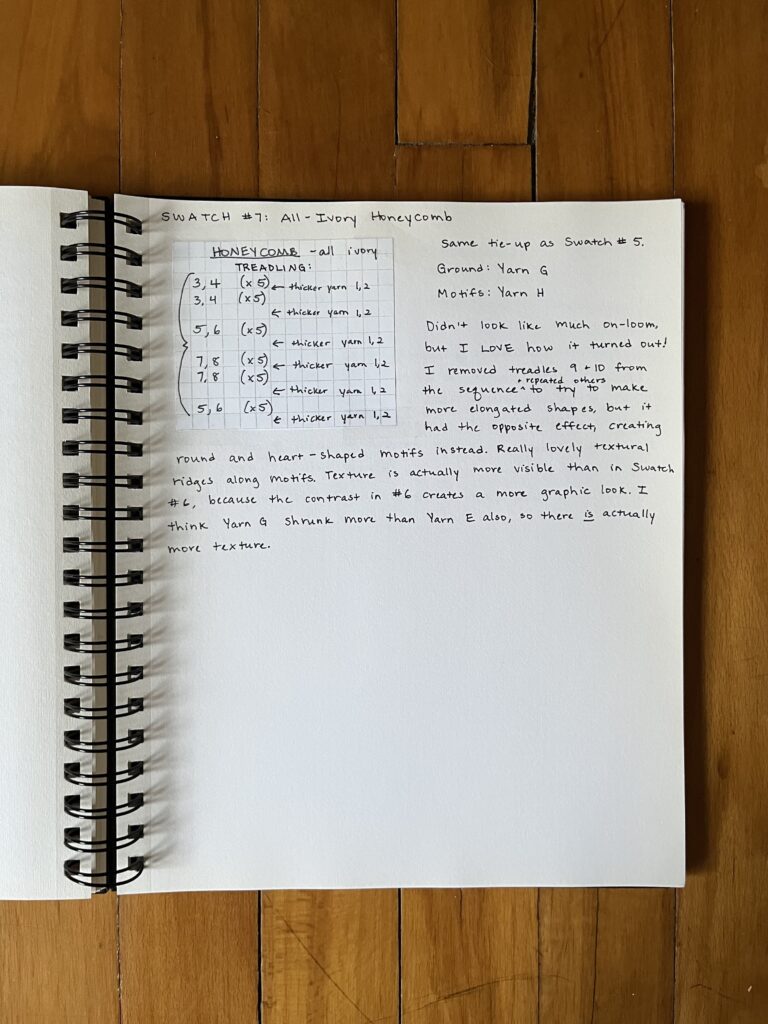 SWATCH #7: All-Ivory Honeycomb
HONEYCOMB - all ivory
TREADLING:
3,4 (x5) ← thicker yarn 1,2
3,4 (x5)
← thicker yarn 1,2
5,6 (x5)
← thicker yarn 1,2
7,8 (x5) ← thicker yarn 1,2
7,8 (x5)
← thicker yarn 1,2
5,6 (x5)
← thicker yarn 1,2
Same tie-up as Swatch #5.
Ground: Yarn G
Motifs: Yarn H
Didn't look like much on-loom,
but I LOVE how it turned out!
I removed treadles 9 + 10 from
the sequence ^ + repeated others to try to make
more elongated shapes, but it
had the opposite effect, creating
round and heart-shaped motifs instead. Really lovely textural
ridges along motifs. Texture is actually more visible than in Swatch
#6, because the contrast in #6 creates a more graphic look. I
think Yarn G shrunk more than Yarn E also, so there is actually
more texture.